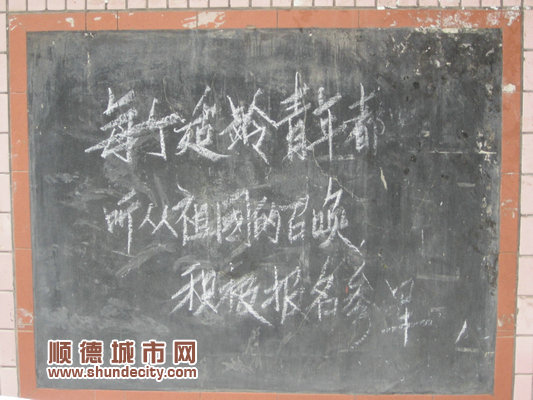 每个适龄青年都
听从祖国的召唤
积极报名参军
顺德城市网
www.shundecity.com